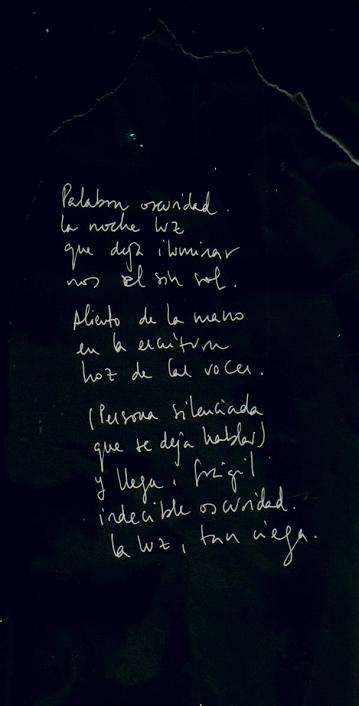 Palabra oscuridad.
la noche luz
que deja iluminar
nos el sin sol.
Aliento de la mano
en la escritura
hoz de las voces.
(Persona silenciada
que se deja hablar)
y llega, frágil
indecible oscuridad.
la luz, tan ciega.